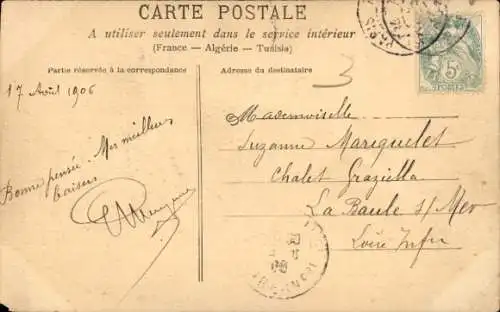 CARTE POSTALE
A utiliser seulement dans le service intérieur
(France — Algérie — Tunisie)
Partie réservée à la correspondance
Adresse du destinataire
17 Août 1906
Bonne pensée. Mes meilleurs
baisers
3
Mademoiselle
Suzanne Mariquelet
Chalet Graziella
La Baule s/ Mer
Loire Infre
5c
POSTES